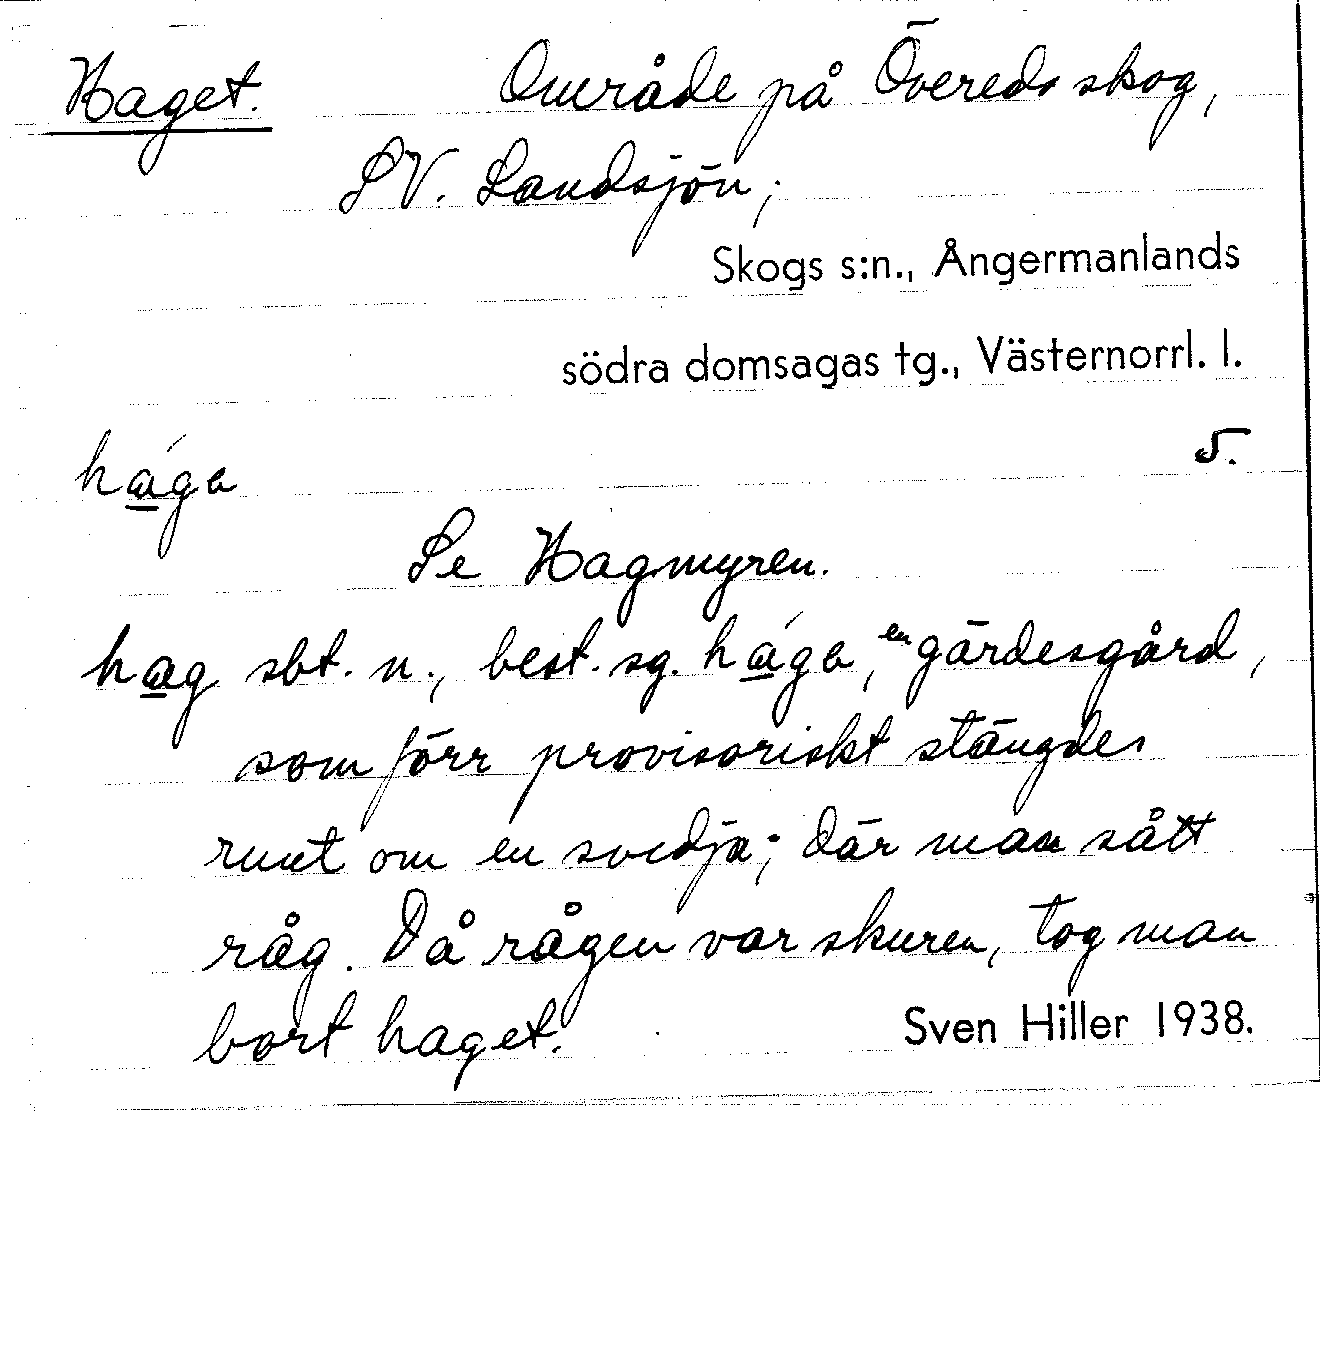 Haget. Område på Övereds skog,
SV. Landsjön;
Skogs s:n., Ångermanlands
södra domsagas tg., Västernorrl. l.
5.
hága
Se Hagmyren.
hag sbt. n., best. sg. hága, en gärdesgård,
som förr provisoriskt stängdes
runt om en svedja; där man sått
råg. Då rågen var skuren, tog man
bort haget.
Sven Hiller 1938.